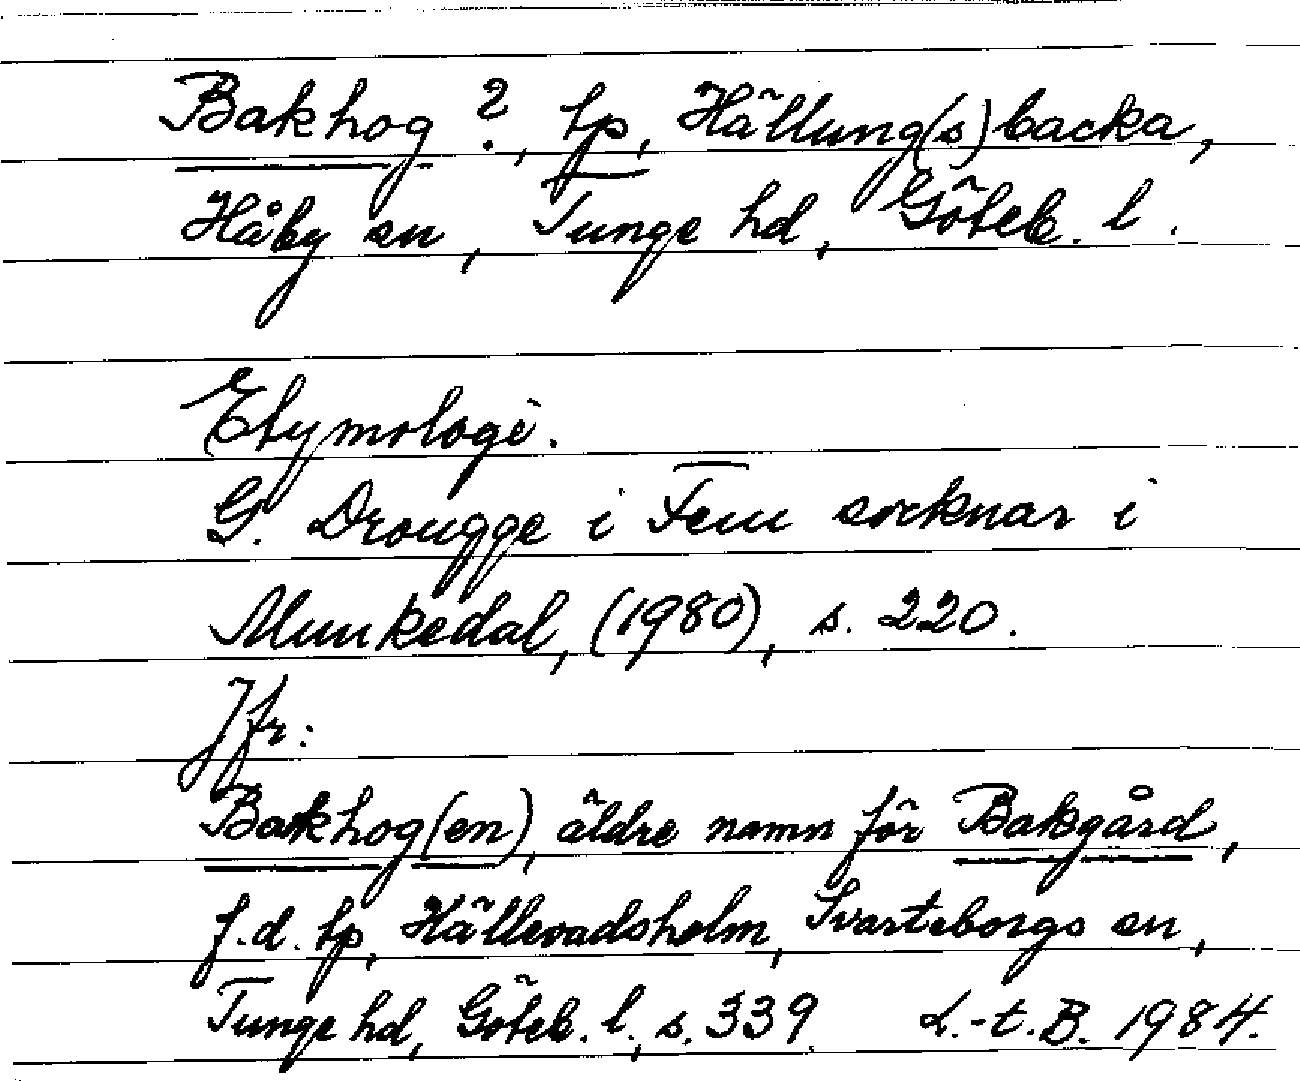 Bakhog ?, tp, Hällung(s)backa,
Håby sn, Tunge hd, Göteb. l.
Etymologi.
G. Drougge i Fem socknar i
Munkedal, (1980), s. 220.
Jfr:
Bakhog(en), äldre namn för Bakgård,
f.d. tp, Hällevadsholm, Svarteborgs sn,
Tunge hd, Göteb. l., s. 339. L.-t.B. 1984.